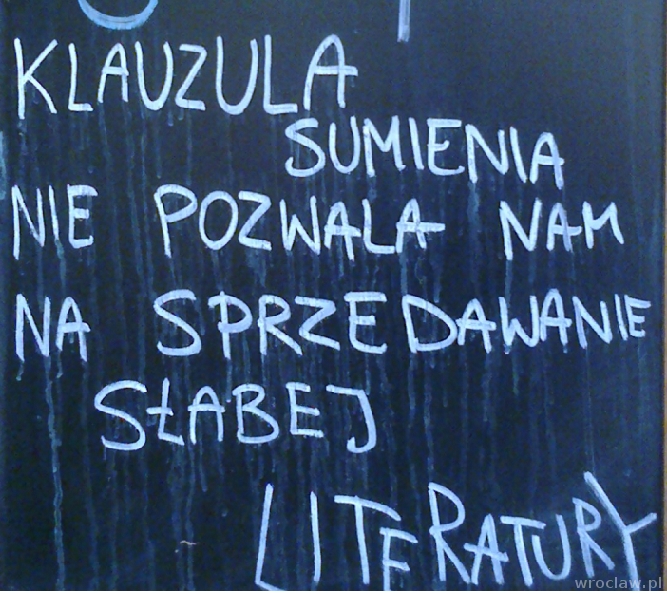 KLAUZULA
SUMIENIA
NIE POZWALA NAM
NA SPRZEDAWANIE
SŁABEJ
LITERATURY
wroclaw.pl